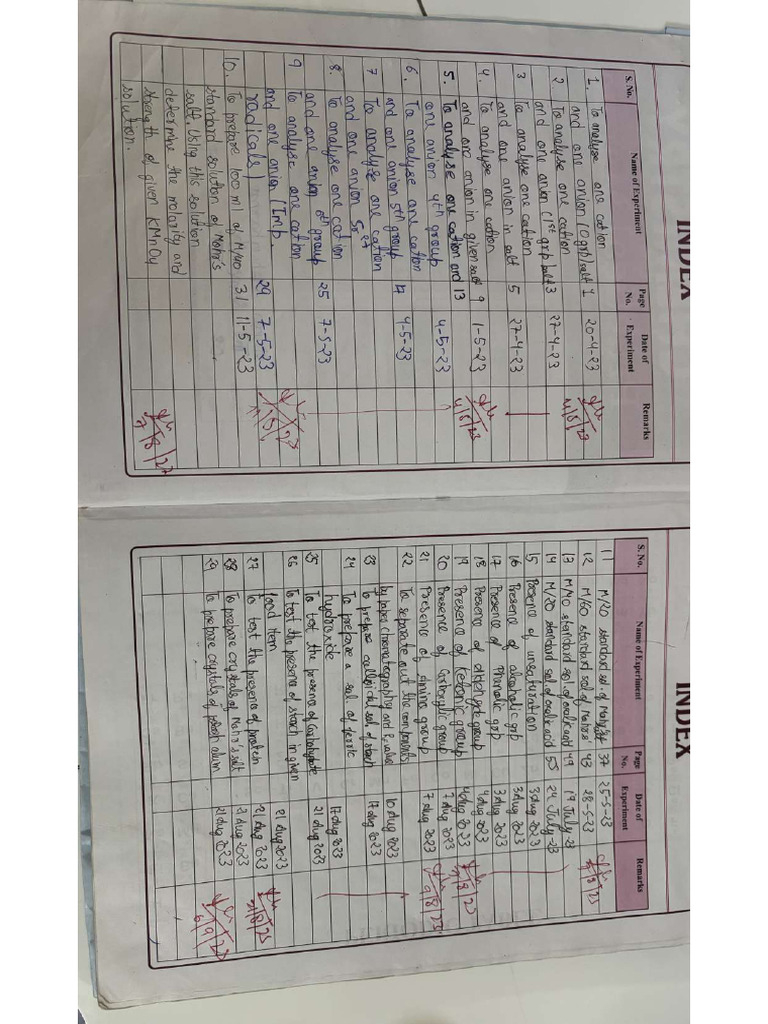 INDEX
S. No. Name of Experiment Page No. Date of Experiment Remarks
1. To analyse one cation
and one anion (0 grp) salt 1 20-4-23
2 To analyse one cation
and one anion (1st grp) salt 3 27-4-23
3 To analyse one cation
and one anion in salt 5 27-4-23
4. To analyse one cation
and one anion in given salt 9 1-5-23
5. To analyse one cation and 13
one anion 4th group 4-5-23
6. To analyse one cation
and one anion 5th group 17 4-5-23
7 To analyse one cation
and one anion
8. To analyse one cation
and one anion 6th group 25 7-5-23
9 To analyse one cation
and one anion (Imp
radicals) 29 7-5-23
10. To prepare 100 ml of M/40 31 11-5-23
standard solution of Mohr's
salt. Using this solution
determine the molarity and
strength of given KMnO4
solution.
INDEX
S. No. Name of Experiment Page No. Date of Experiment Remarks
11 M/20 standard sol of 37 25-5-23
12 M/60 standard sol of Mohrs' 43 28-5-23
13 M/40 standard sol of oxalic acid 49 19 July-23
14 M/20 standard sol of oxalic acid 55 24 July-23
15 Presence of unsaturation 3 Aug 2023
16 Presence of alcoholic grp 3 Aug 2023
17 Presence of Phenolic grp 3 Aug 2023
18 Presence of aldehyde group 4 Aug 2023
19 Presence of Ketonic group 4 Aug 2023
20 Presence of Carboxylic group 7 Aug 2023
21 Presence of Amine group 7 Aug 2023
22 To separate out the components
by paper chromatography and Rf value 10 Aug 2023
23 To prepare colloidal sol of starch 17 Aug 2023
24 To prepare a sol of ferric
hydroxide 17 Aug 2023
25 To test the presence of Carbohydrate 21 Aug 2023
26 To test the presence of starch in given
food item 21 Aug 2023
27 To test the presence of protein 21 Aug 2023
28 To prepare crystals of Mohr's salt 21 Aug 2023
29 To prepare crystals of potash alum 21 Aug 2023